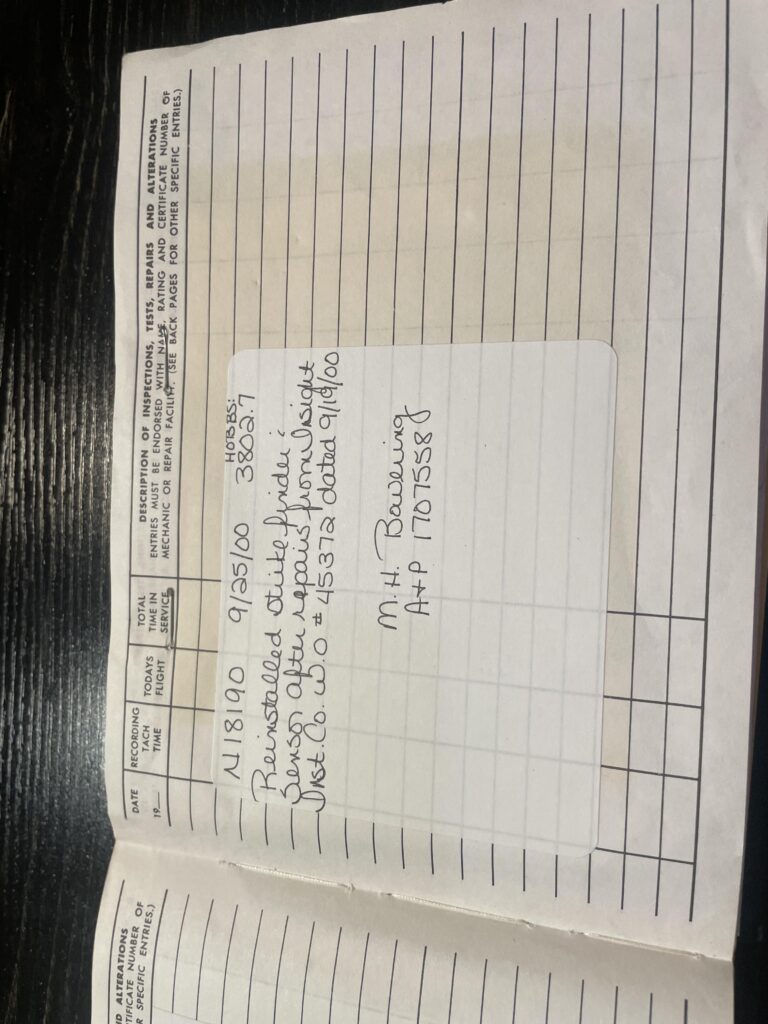 D ALTERATIONS
TIFICATE NUMBER OF
R SPECIFIC ENTRIES.)
DATE
19
RECORDING
TACH
TIME
TODAYS
FLIGHT
TOTAL
TIME IN
SERVICE
DESCRIPTION OF INSPECTIONS, TESTS, REPAIRS AND ALTERATIONS
ENTRIES MUST BE ENDORSED WITH NAME, RATING AND CERTIFICATE NUMBER OF
MECHANIC OR REPAIR FACILITY. (SEE BACK PAGES FOR OTHER SPECIFIC ENTRIES.)
HOBBS:
N18190 9/25/00 3802.7
Reinstalled strike finder &
Sensor after repairs from Insight
Inst. Co. W.O # 45372 dated 9/19/00
M. H. Bowering
A+P 1707558